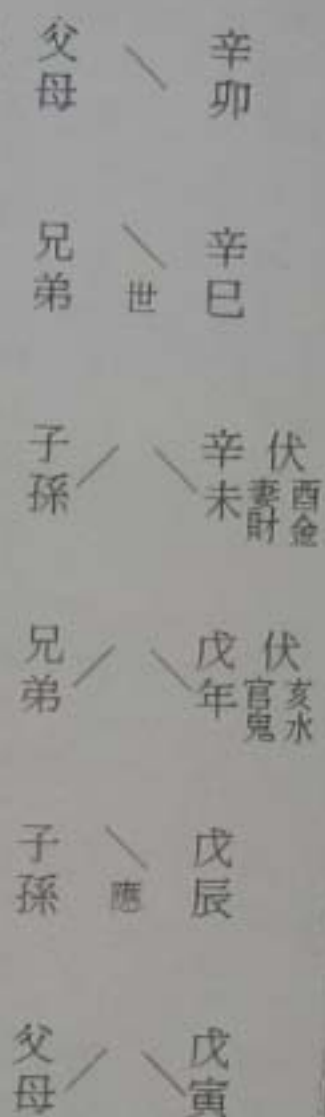 父母 辛卯
兄弟 世 辛巳
子孫 辛未 伏 妻財 酉金
兄弟 戊年 伏 官鬼 亥水
子孫 應 戊辰
父母 戊寅